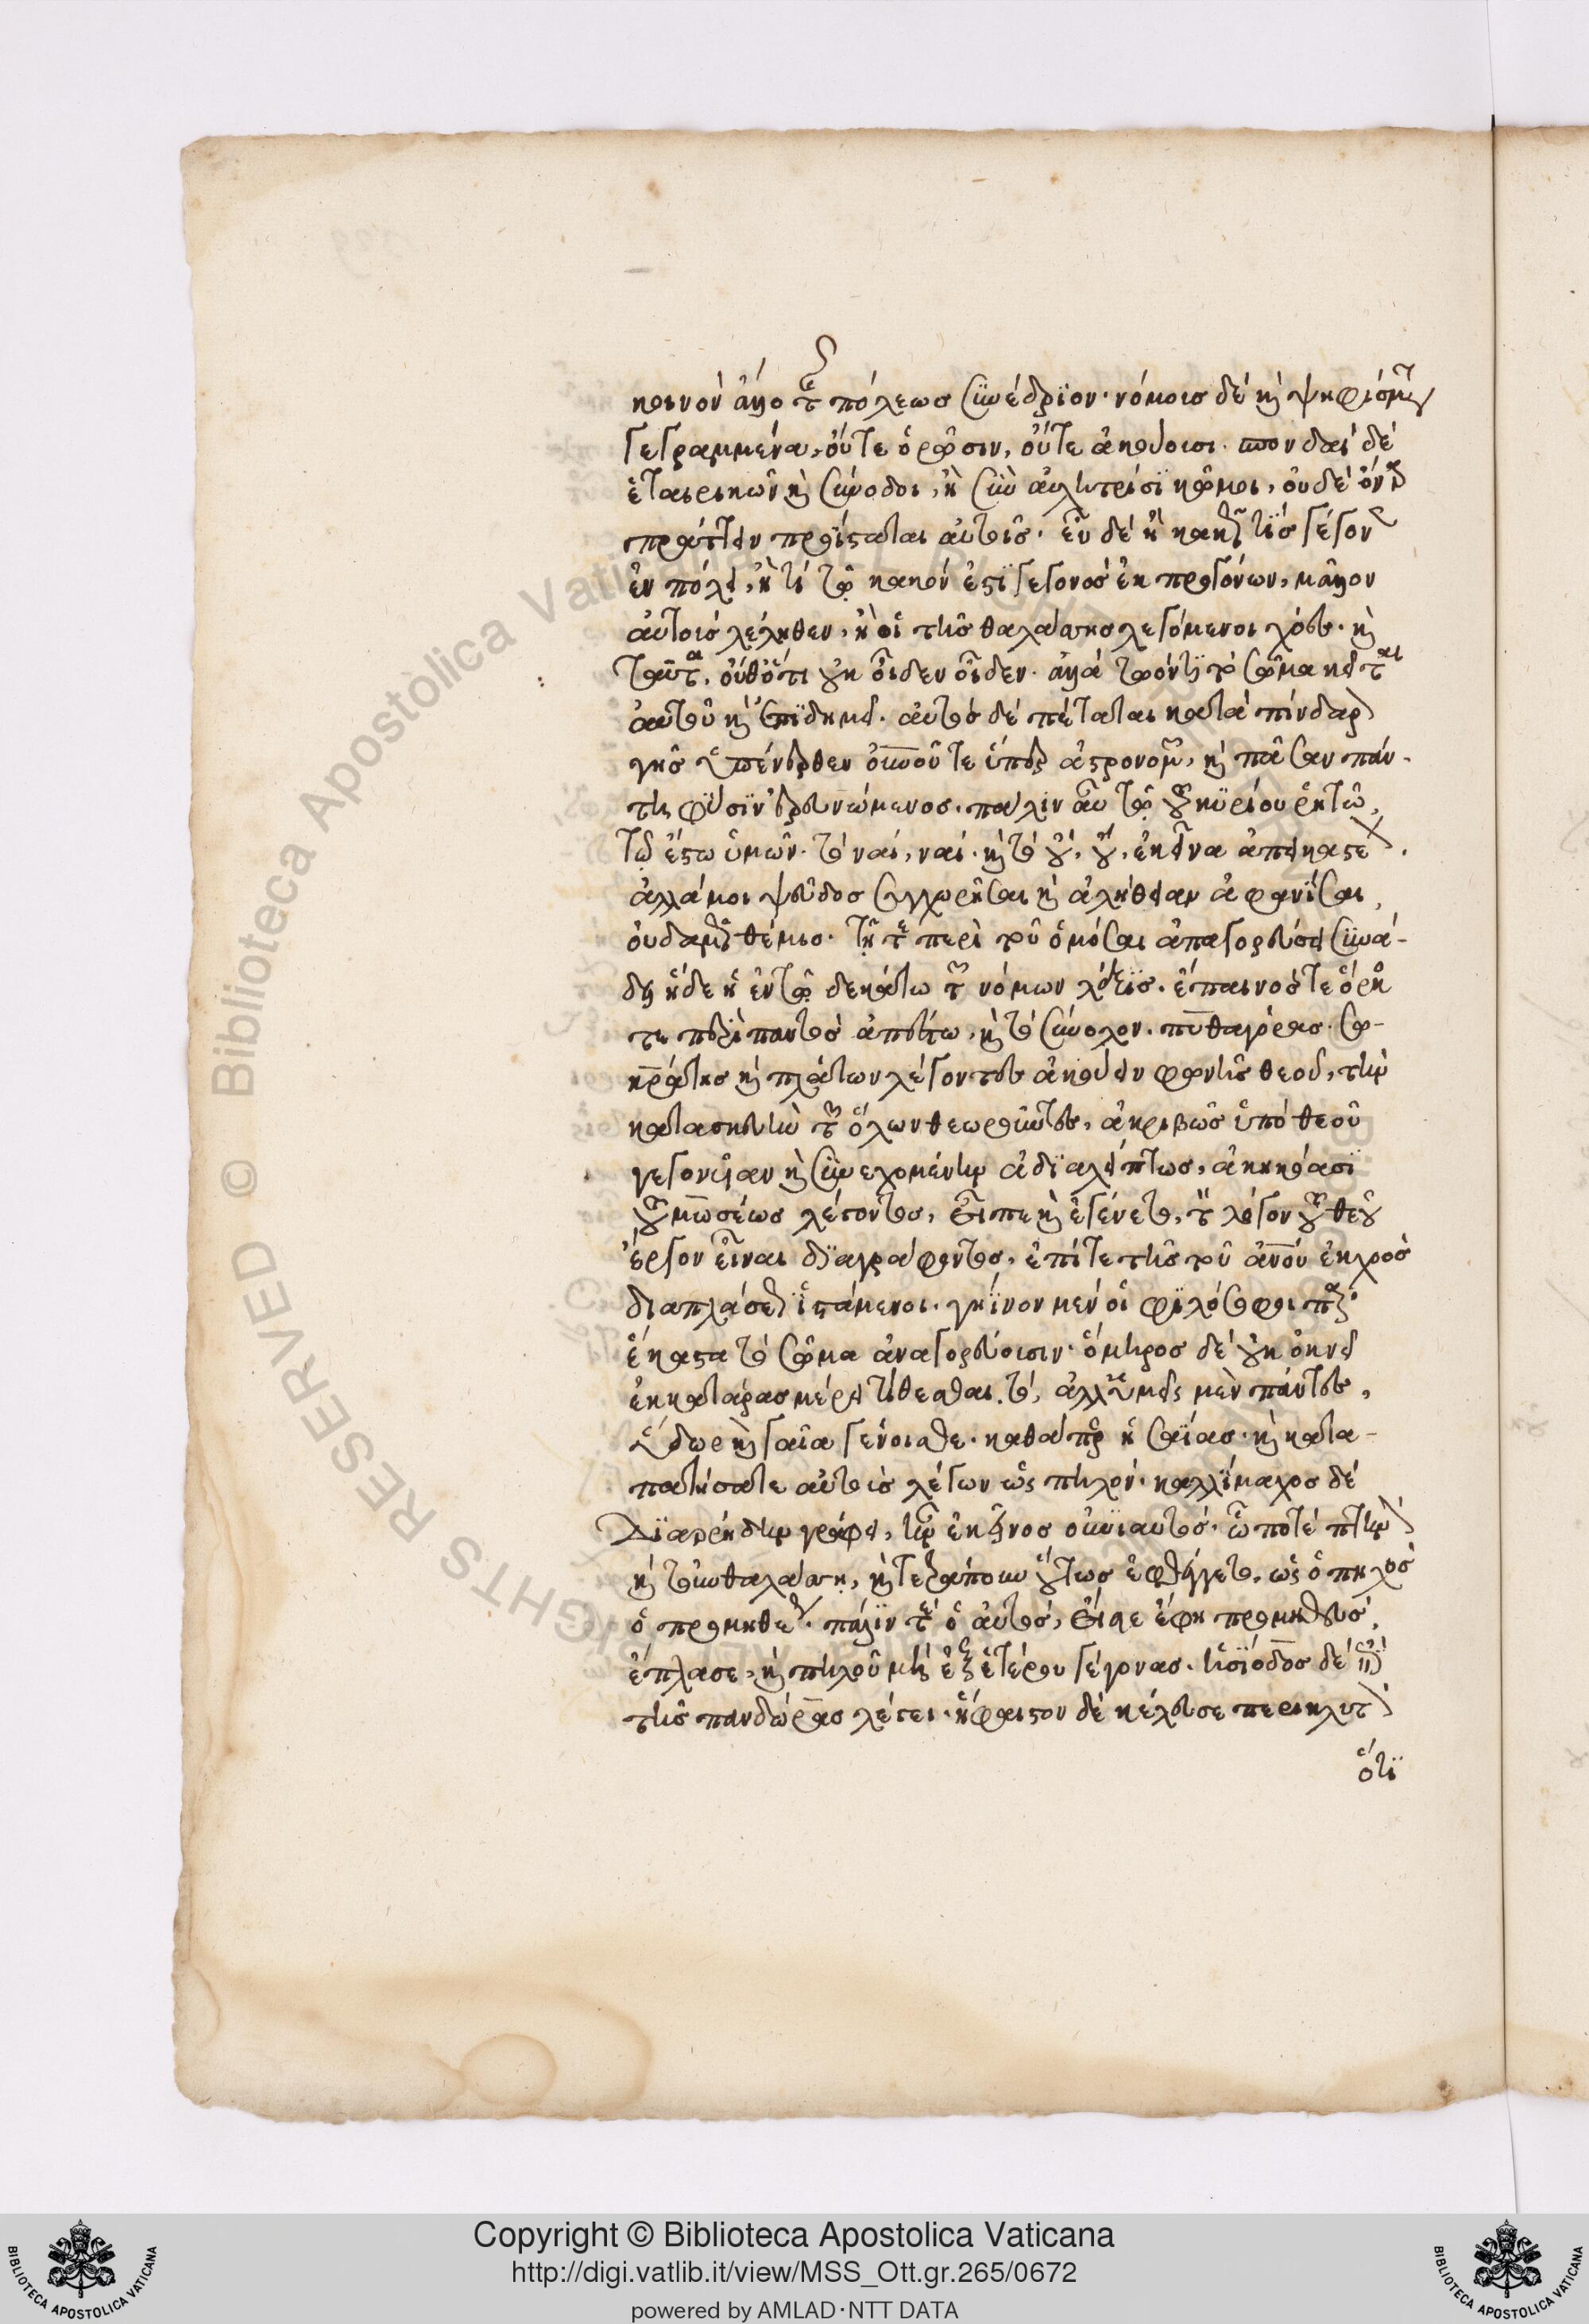 κοινὸν ἄλλο τῆς πόλεως συνέδριον· νόμοις δὲ καὶ ψηφίσματα
γεγραμμένα, οὔτε ὁρῶσιν, οὔτε ἀκούουσι. σπονδαὶ δὲ
ἑταιρικῶν καὶ σύνοδοι, καὶ σὺν αὐλητρίσι κῶμοι, οὐδὲ ὄναρ
πράττειν προίσταται αὐτοῖς. εὖ δὲ ἢ κακῶς τίς γέγονεν
ἐν πόλει, ἢ τί τῷ κακόν ἐστι γεγονὸς ἐκ προγόνων, μᾶλλον
αὐτοὺς λέληθεν, ἢ οἱ τῆς θαλάσσης λεγόμενοι χόες. καὶ
ταῦτα, οὐδ' ὅτι οὐκ οἶδεν οἶδεν. ἀλλὰ τῷ ὄντι τὸ σῶμα κεῖται
αὐτοῦ καὶ ἐπιδημεῖ. αὐτὸς δὲ πέταται κατὰ πίνδαρον
γῆς ὑπένερθεν οὐρανοῦ τε ὕπερ ἀστρονομῶν, καὶ πᾶσαν πάν-
τη φύσιν ἐρευνώμενος. πάλιν αὖ τῷ τοῦ κυρίου ῥητῷ,
τῷ ἔστω ὑμῶν. τὸ ναί, ναί. καὶ τὸ οὔ, οὔ, ἐκεῖνα ἀπεικαστέον.
ἀλλά μοι ψεῦδος συγχωρῆσαι καὶ ἀλήθειαν ἀφανίσαι,
οὐδαμῶς θέμις. τῇ τε περὶ τοῦ ὀμόσαι ἀπαγορεύσει συνά-
δει ἥδε ἡ ἐν τῷ δεκάτῳ τῶν νόμων λέξις. ἔπαινός τε ὅρκος
τε περὶ παντὸς ἀπέστω, καὶ τὸ σύνολον. πυθαγόρας. σω-
κράτης καὶ πλάτων λέγοντες ἀκούειν φωνῆς θεοῦ, τὴν
κατασκευὴν τῶν ὅλων θεωροῦντες, ἀκριβῶς ὑπὸ θεοῦ
γεγονυῖαν καὶ συνεχομένην ἀδιαλείπτως, ἀκηκόασι
τοῦ μωσέως λέγοντος, εἶπε καὶ ἐγένετο, τὸν λόγον τοῦ θεοῦ
ἔργον εἶναι διαγράφοντος. ἐπί τε τῆς τοῦ ἀνοῦ ἐκ χοὸς
διαπλάσεως ἱστάμενοι. γήινον μὲν οἱ φιλόσοφοι παρ'
ἕκαστα τὸ σῶμα ἀναγορεύουσιν. ὅμηρος δὲ οὐκ ὀκνεῖ
ἐν κατάρας μέρει τίθεσθαι. τό, ἀλλ' ὑμεῖς μὲν πάντες,
ὕδωρ καὶ γαῖα γένοισθε. καθάπερ ἡσαΐας. καὶ κατα-
πατήσατε αὐτοὺς λέγων ὡς πηλόν. καλλίμαχος δὲ
διαρρήδην γράφει, ἦν ἐκεῖνος οὑνιαυτός. ᾧ ποτέ πτην
καὶ τοὐν θαλάσσῃ, καὶ τετράπουν οὕτως ἐφθέγγετο, ὡς ὁ πηλὸς
ὁ προμηθεῖος. πάλιν τε ὁ αὐτός, εἴ σε ἔφη προμηθεύς,
ἔπλασε, καὶ πηλοῦ μὴ ἐξ ἑτέρου γέγονας. ἡσίοδος δὲ ἐπὶ
τῆς πανδώρας λέγει. ἥφαιστον δὲ κέλευσε περικλυτὸν
ὅτι
Copyright © Biblioteca Apostolica Vaticana
http://digi.vatlib.it/view/MSS_Ott.gr.265/0672
powered by AMLAD·NTT DATA